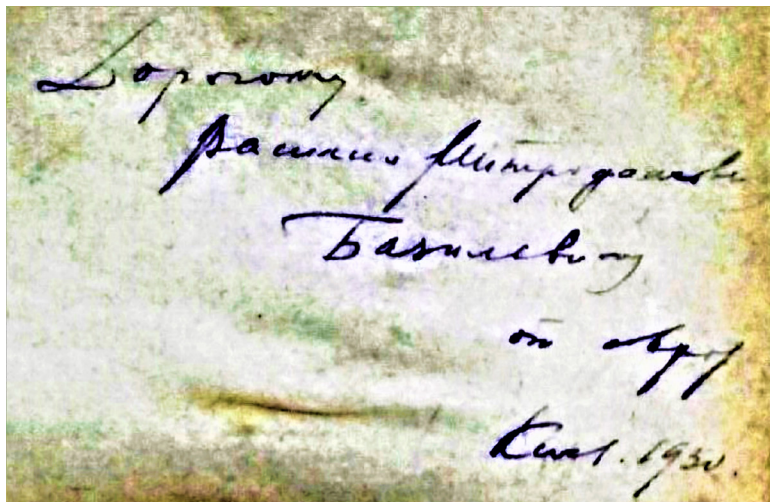 Дорогому
Василию Митрофанови
Базилевичу
от автора
Киев. 1930.